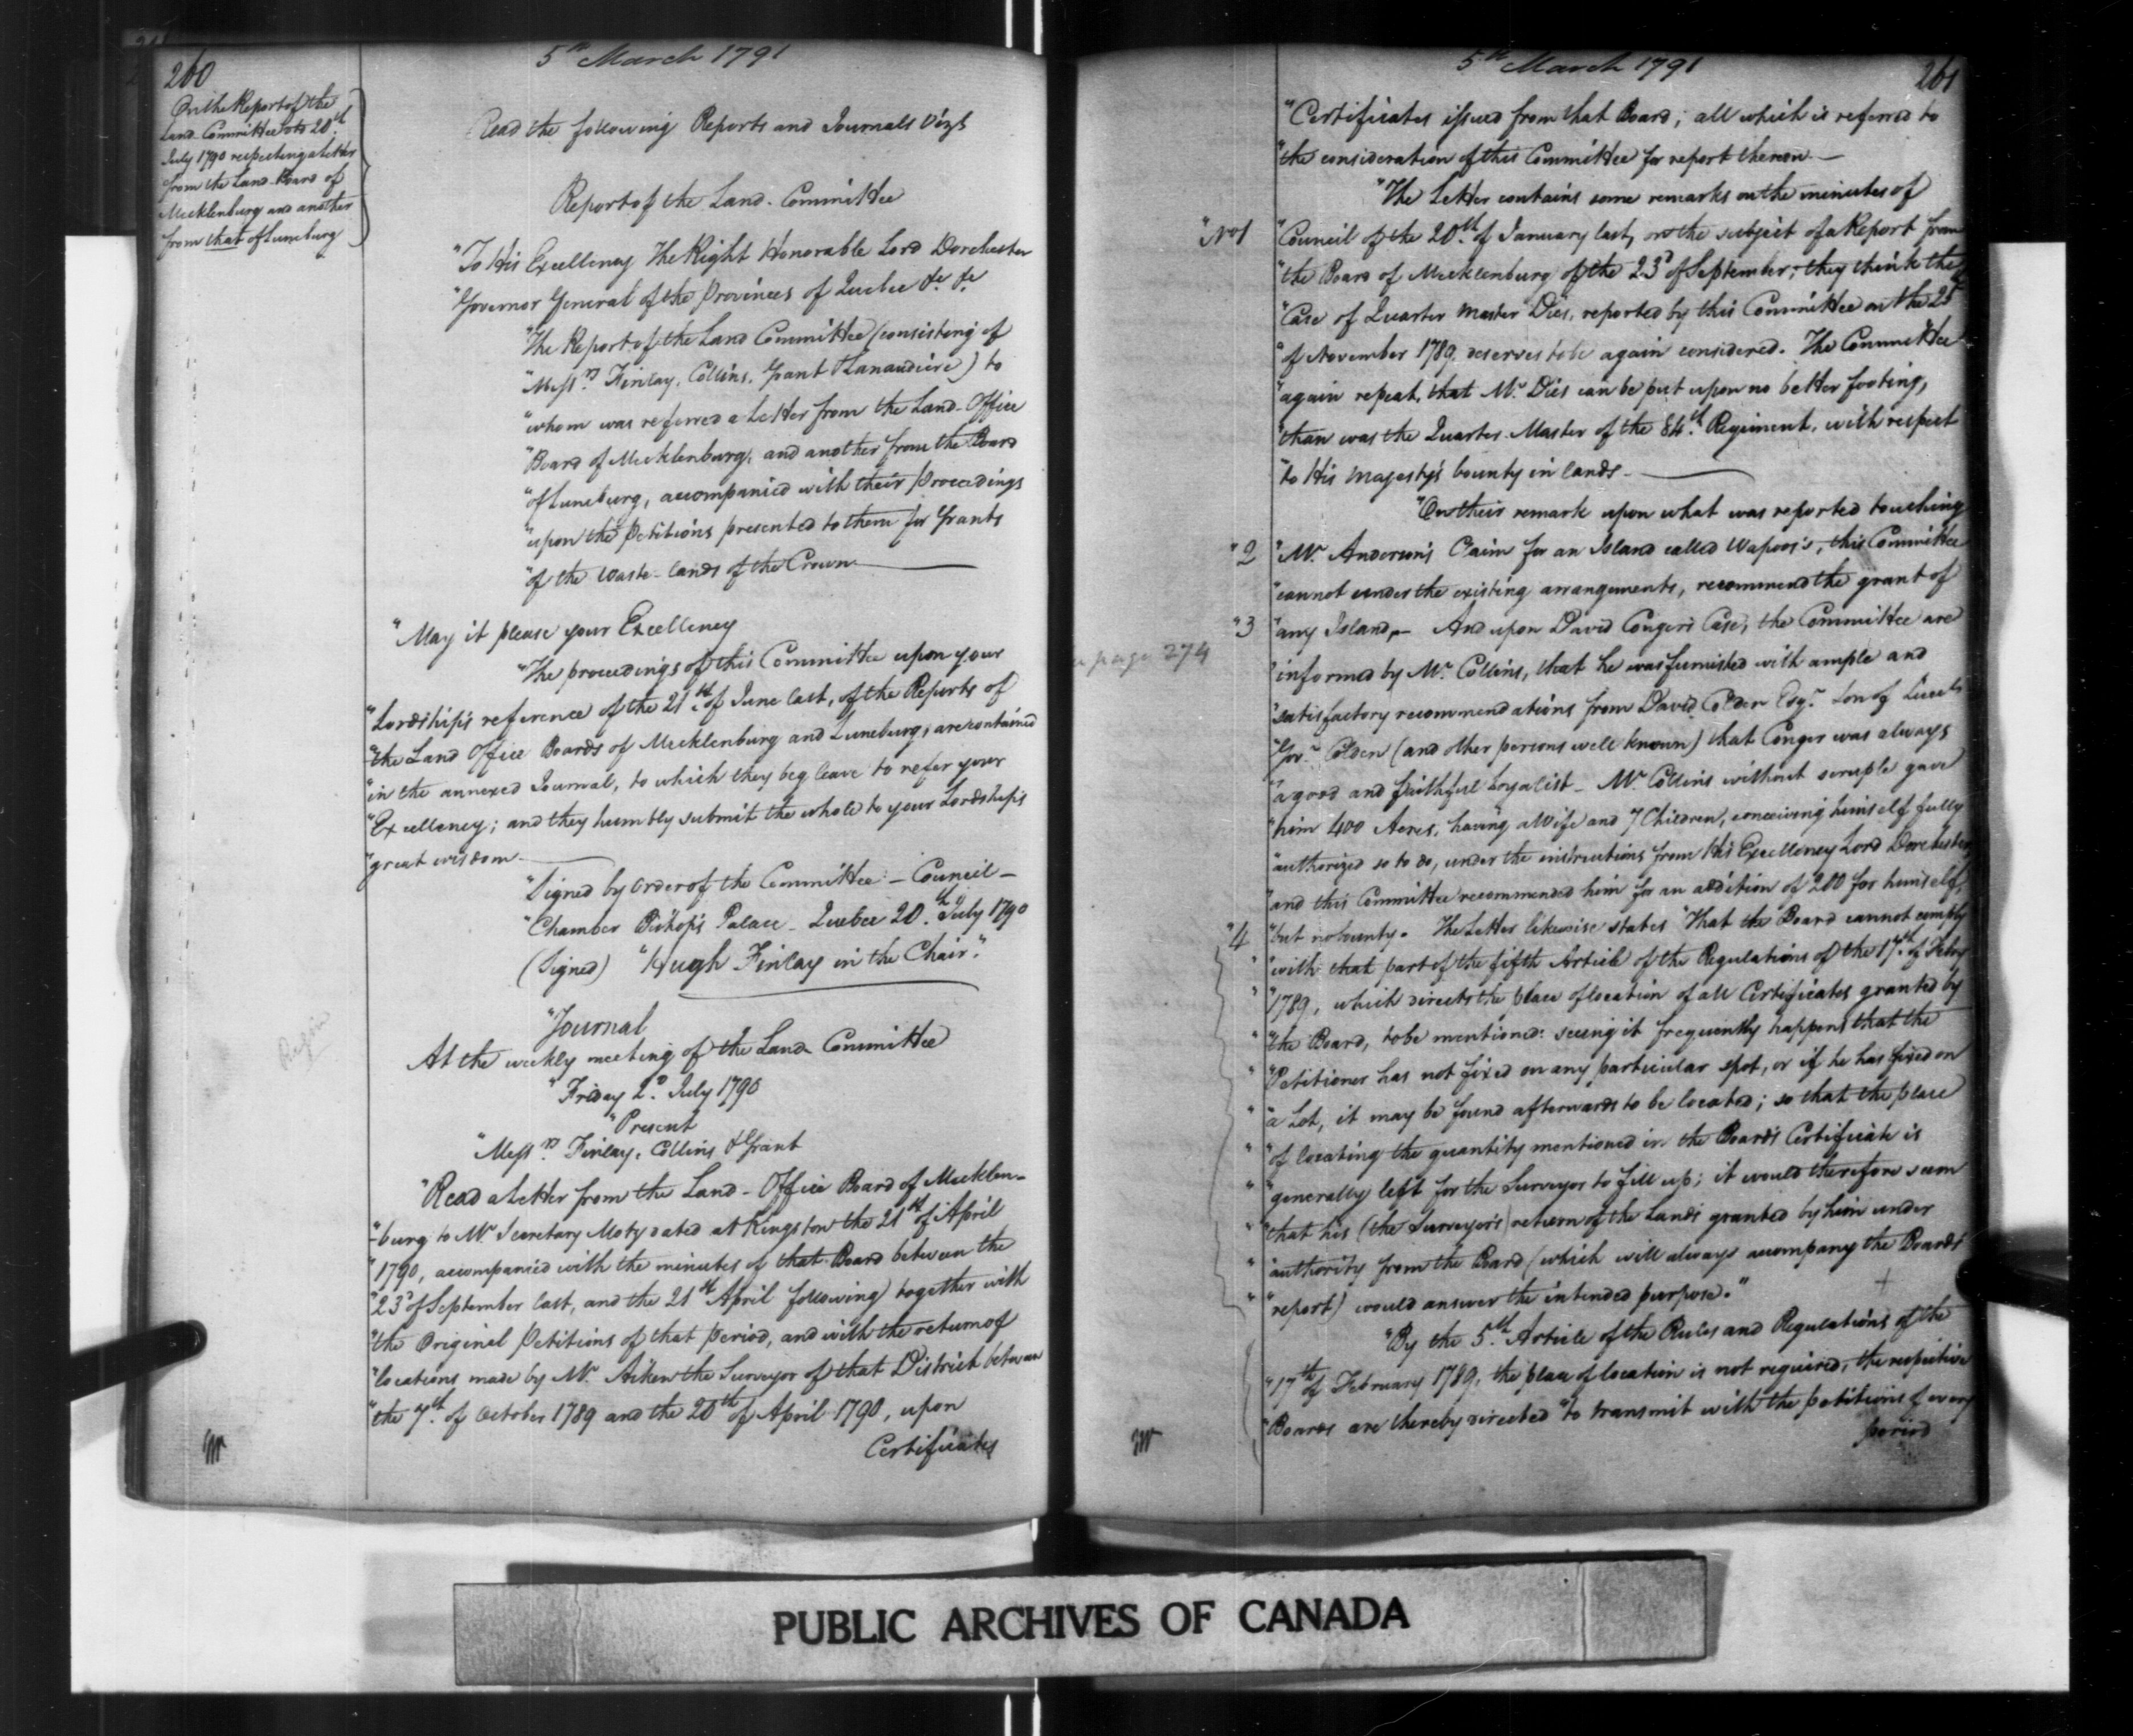 260
5th March 1791
On the Report of the
Land Committee 20th
July 1790 respecting a letter
from the Land Board of
Mecklenburg and another
from that of Luneburg
Read the following Reports and Journals Vizt
Report of the Land-Committee
"To His Excellency The Right Honorable Lord Dorchester
"Governor General of the Provinces of Quebec &c. &c.
"The Report of the Land Committee (consisting of
"Messrs. Finlay, Collins, Grant & Lanaudiere) to
"whom was referred a Letter from the Land-Office
"Board of Mecklenburg, and another from the Board
"of Luneburg, accompanied with their Proceedings
"upon the Petitions presented to them for Grants
"of the Waste-lands of the Crown.
"May it please your Excellency
"The proceedings of this Committee upon your
"Lordship's reference of the 21st of June last, of the Reports of
"the Land Office Boards of Mecklenburg and Luneburg, are contained
"in the annexed Journal, to which they beg leave to refer your
"Excellency; and they humbly submit the whole to your Lordship's
"great wisdom.
"Signed by Order of the Committee - Council -
"Chamber Bishop's Palace - Quebec 20th July 1790
(Signed) "Hugh Finlay in the Chair."
"Journal
At the weekly meeting of the Land Committee
"Friday 2d. July 1790
"Present
"Messrs. Finlay, Collins & Grant
"Read a Letter from the Land-Office Board of Mecklen-
"-burg to Mr. Secretary Motz dated at Kingston the 21st of April
"1790, accompanied with the minutes of that Board between the
"23d of September last, and the 21st April following) together with
"the Original Petitions of that period, and with the return of
"locations made by Mr. Aitken the Surveyor of that District between
"the 7th. of October 1789 and the 20th of April 1790, upon
Certificates
5th March 1791
261
"Certificates issued from that Board; all which is referred to
"the consideration of this Committee for report thereon.—
"The Letter contains some remarks on the minutes of
"No 1
"Council of the 20th. of January last, on the subject of a Report from
"the Board of Mecklenburg of the 23d of September; they think the
"Case of Quarter Master Dies, reported by this Committee on the 25th
"of November 1789, deserves to be again considered. The Committee
"again repeat, that Mr. Dies can be put upon no better footing,
"than was the Quarter-Master of the 84th. Regiment, with respect
"to His Majesty's bounty in lands.
"On their remark upon what was reported touching
"2
"Mr. Anderson's Claim for an Island called Wapoos's, this Committee
"cannot under the existing arrangements, recommend the grant of
"3
"any Island,— And upon David Conger's Case, the Committee are
page 274
"informed by Mr. Collins, that he was furnished with ample and
"satisfactory recommendations from David Colden Esqr. Son of Lieut
"Govr. Colden (and other persons well known) that Conger was always
"a good and faithful Loyalist - Mr. Collins without scruple gave
"him 400 Acres, having a Wife and 7 Children, conceiving himself fully
"authorized so to do, under the instructions from His Excellency Lord Dorchester,
"and this Committee recommended him for an addition of 200 for himself,
"4
"but no bounty. The Letter likewise states "That the Board cannot comply
" "with that part of the fifth Article of the Regulations of the 17th. of Febry
" "1789, which directs the place of location of all Certificates granted by
" "the Board, to be mentioned: seeing it frequently happens that the
" "Petitioner has not fixed on any particular spot, or if he has fixed on
" "a Lot, it may be found afterwards to be located; so that the place
" "of locating the quantity mentioned in the Board's Certificate is
" "generally left for the Surveyor to fill up; it would therefore seem
" "that his (the Surveyor's) return of the Lands granted by him under
" "authority from the Board (which will always accompany the Board's
" "report) would answer the intended purpose."
"By the 5th. Article of the Rules and Regulations of the
"17th of February 1789, the place of location is not required, the respective
"Boards are thereby directed "to transmit with the petitions of every
period
PUBLIC ARCHIVES OF CANADA